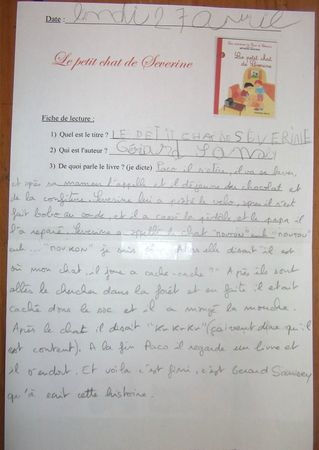 Date : lundi 27 avril
Le petit chat de Séverine
Le petit chat
de Séverine
Fiche de lecture :
1) Quel est le titre ? LE PETIT CHAT DE SEVERINE
2) Qui est l'auteur ? Gérard
3) De quoi parle le livre ? (je dicte) Paco il se lave,
et après sa maman l'appelle et il déjeune du chocolat et
de la confiture. Séverine lui a prêté le vélo, après il s'est
fait bobo au coude et il a cassé la pédale et le papa il
l'a réparé. Séverine a appelé le chat "NOUTON" euh "NOUTOU"
euh... "NOUKON" je sais Alors elle disait "il est
où mon chat, il joue à cache-cache ?" Après ils sont
allés le chercher dans la forêt et en faite il était
caché dans le sac et il a mangé la mouche.
Après le chat il disait "KRKRKR" (ça veut dire qu'il
est content). A la fin Paco il regarde un livre et
il s'endort. Et voilà c'est fini, c'est Gérard
qu'a écrit cette histoire.